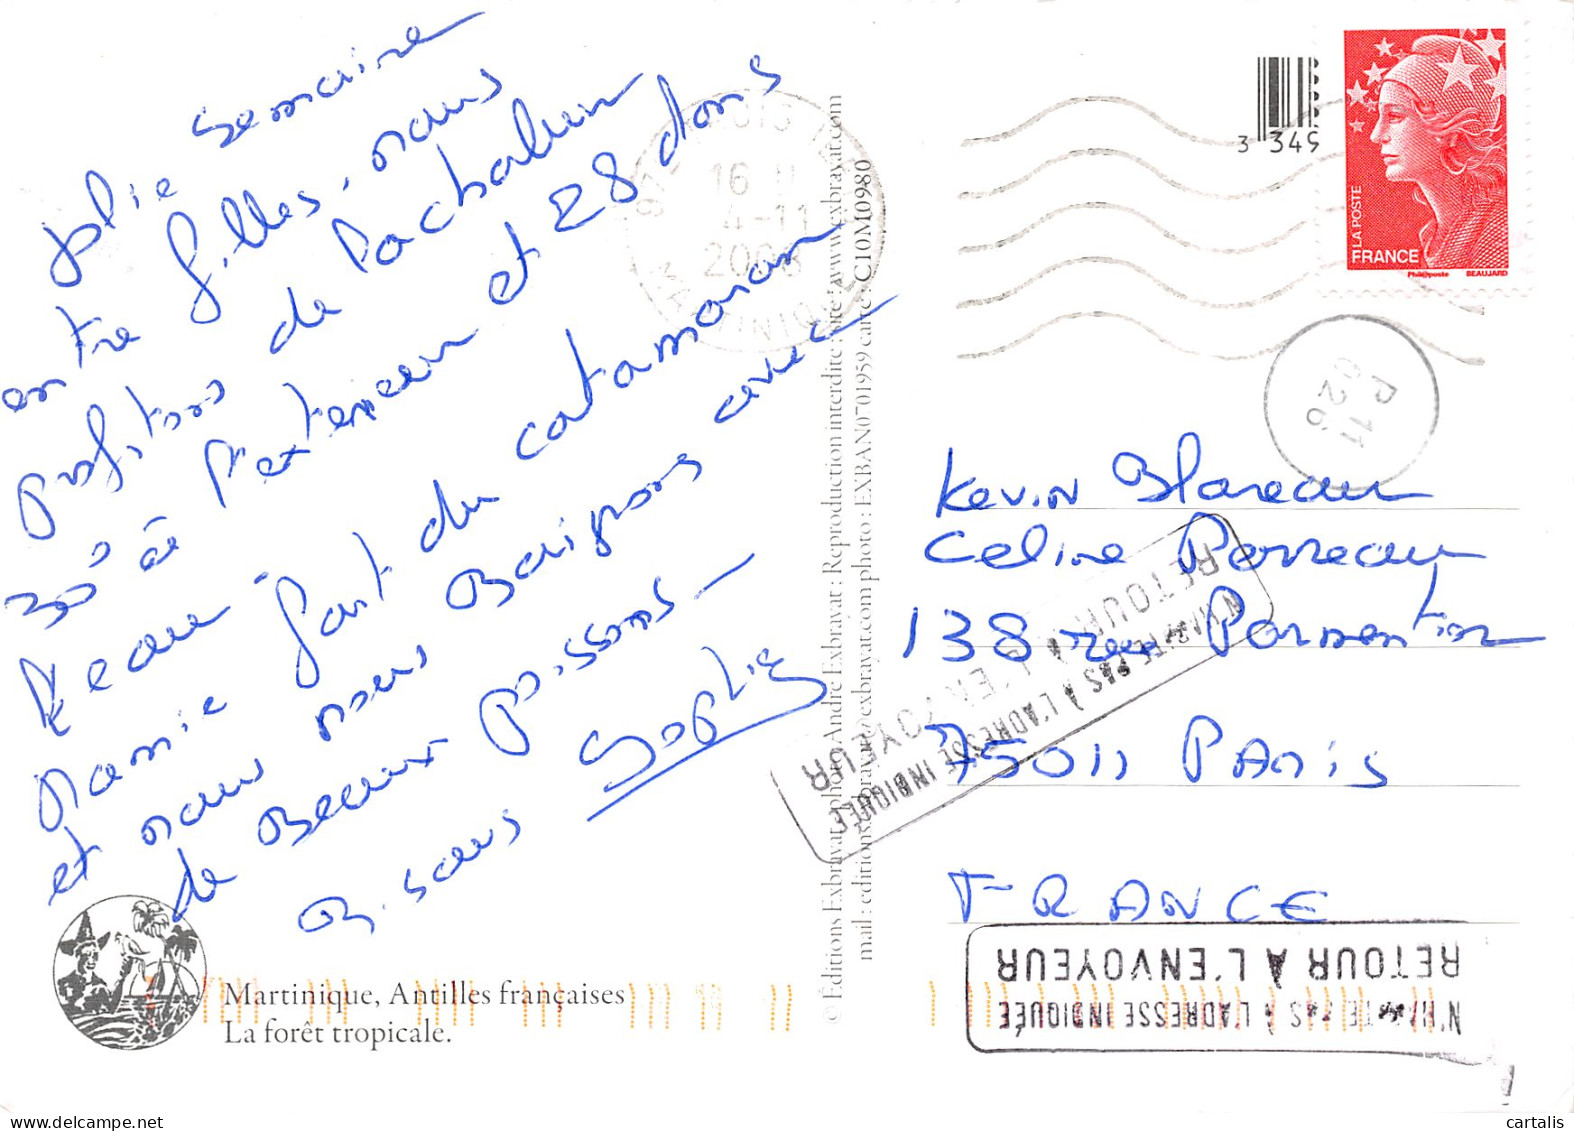 Jolie semaine
entre filles, nous
profitons de la chaleur
30° à l'exterieur et 28 dans
l'eau - fait du catamaran
Mamie
et nous nous Baignons avec
de Beaux poissons -
Bisous Sophie
Martinique, Antilles françaises
La forêt tropicale.
© Éditions Exbrayat, photo André Exbrayat : Reproduction interdite site : www.exbrayat.com
mail : editions@exbrayat.com photo : EXBAN0701959 carte : C10M0980
16 H
4-11
MARTINIQUE
3 349
LA POSTE
FRANCE
Phil@poste BEAUJARD
Kevin
Celine
138 rue Parmentier
75011 PARIS
FRANCE
N'HABITE PAS À L'ADRESSE INDIQUÉE
RETOUR À L'ENVOYEUR
N'HABITE PAS À L'ADRESSE INDIQUÉE
RETOUR À L'ENVOYEUR
cartalis